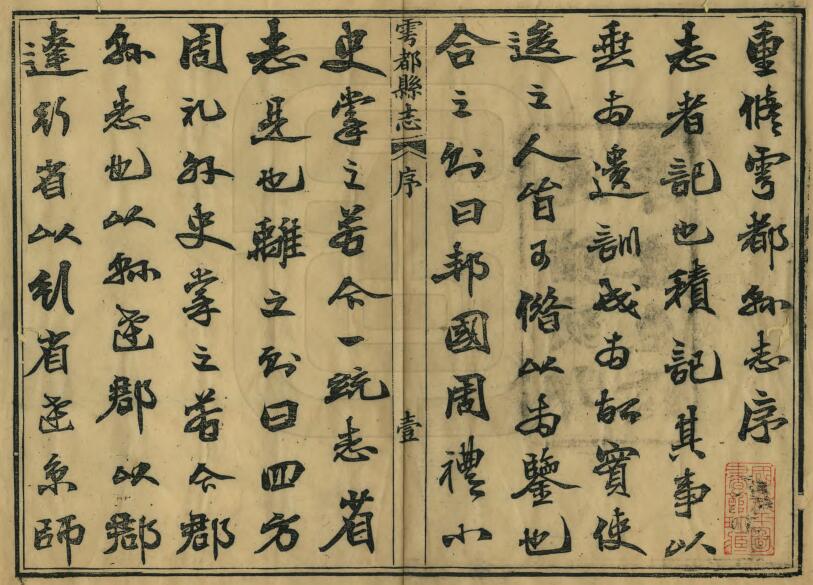 重脩雩都縣志序
志者記也積記其事以
垂為遺訓成為故實使
後之人皆可借以為鑒也
合之則曰邦國周禮小
雩都縣志 序 壹
史掌之若今一統志省
志是也離之則曰四方
周礼外史掌之若今郡
縣志也以縣達郡以郡
達行省以行省達京師